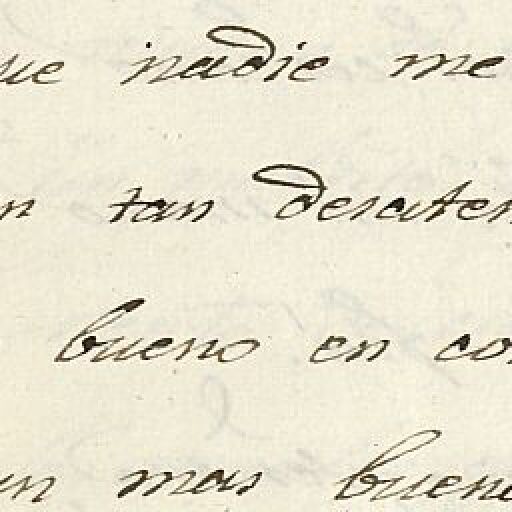 ue nadie me
n tan desaten
bueno en con
un mas bueno